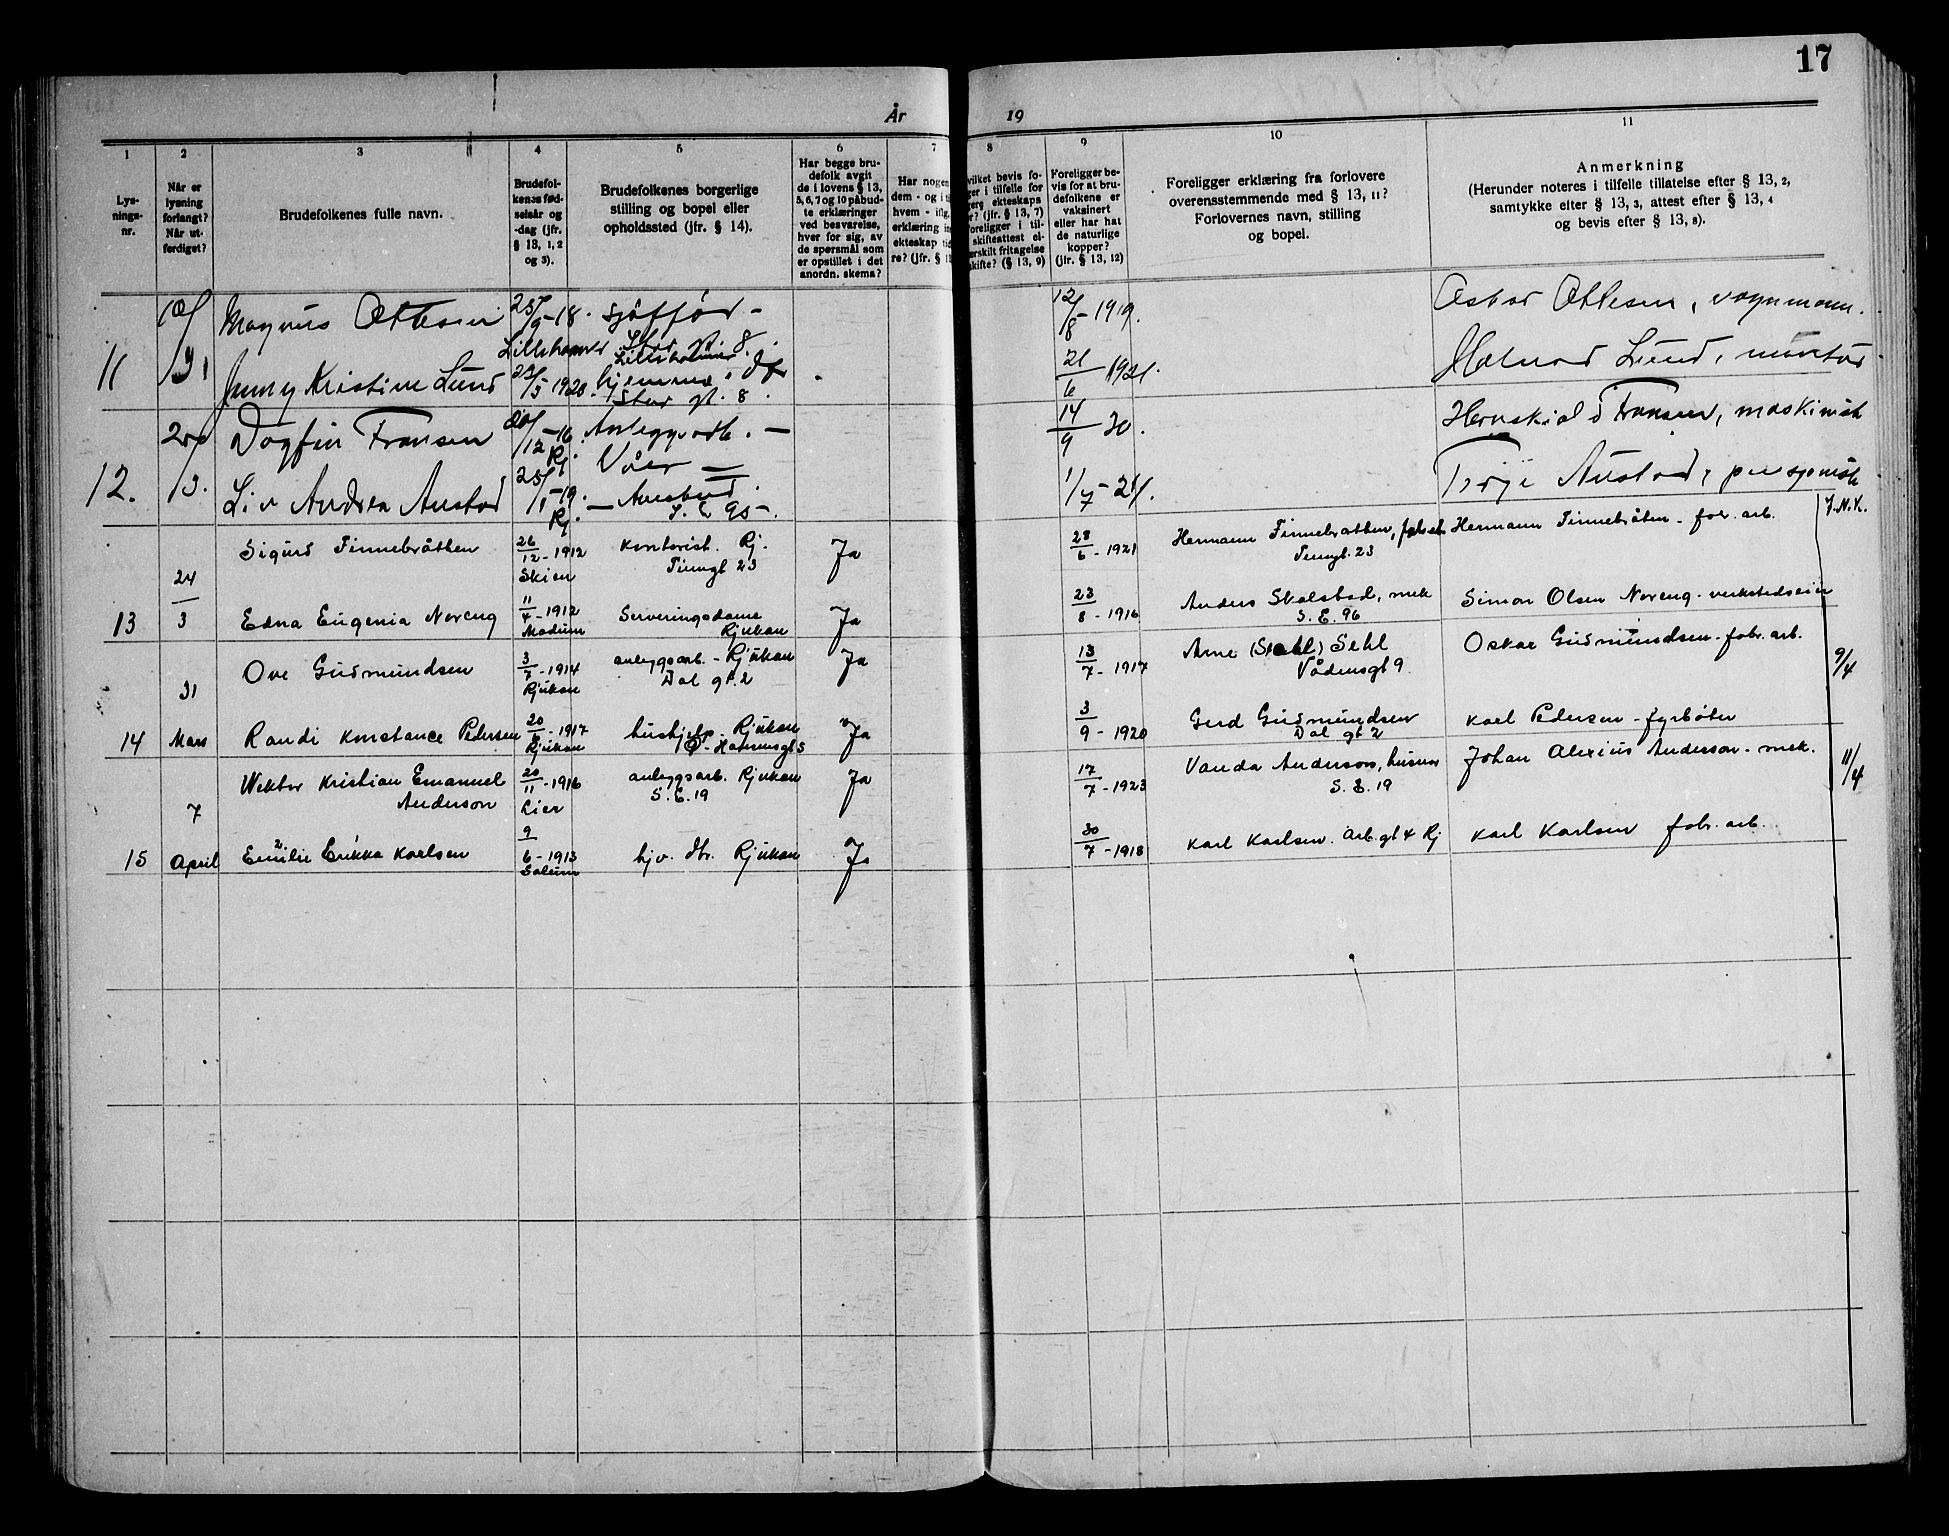 17
År 19
1
2
3
4
5
6
7
8
9
10
11
Lys-
nings-
nr.
Når er
lysning
forlangt?
Når ut-
ferdiget?
Brudefolkenes fulle navn.
Brudefol-
kenes fød-
selsår og
-dag (jfr.
§ 13, 1, 2
og 3).
Brudefolkenes borgerlige
stilling og bopel eller
opholdssted (jfr. § 14).
Har begge bru-
defolk avgit
de i lovens § 13,
5, 6, 7 og 10 påbud-
te erklæringer
ved besvarelse,
hver for sig, av
de spørsmål som
er opstillet i det
anordn. skema?
Har nogen
dem - og i
hvem - iflg.
erklæring in
ekteskap tid
re? (jfr. § 1
vilket bevis fo-
ger i tilfelle for
gere ekteskaps
r? (jfr. § 13, 7)
Foreligger i til-
skifteattest el-
erskilt fritagelse
skifte? (§ 13, 9)
Foreligger be-
vis for at bru-
defolkene er
vaksinert
eller har hat
de naturlige
kopper?
(jfr. § 13, 12)
Foreligger erklæring fra forlovere
overensstemmende med § 13, 11?
Forlovernes navn, stilling
og bopel.
Anmerkning
(Herunder noteres i tilfelle tillatelse efter § 13, 2,
samtykke efter § 13, 3, attest efter § 13, 4
og bevis efter § 13, 8).
Magnus Ottesen 25/9-18. sjåffør - 12/8-1919. Oskar Ottesen, vognmann.
Lillehammer Stor gt. 8
11 Jenny Kristine Lund 23/5-1920. hjemmev. 21/6 1921. Lund, montør
Stor gt. 8.
Dagfin Fransen 12-16 Anleggsarb. - 14/9-30. Fransen, maskinist
Rj. Våer
12. 13. Liv Andrea Austad 25/1-19. Austbud. 1/7-21. Austad, pensjonist
Rj. S. E 95-.
Sigurd Finnebråthen 26/12-1912 Kontorist. Rj. Ja 28/6-1921 Hermann Finnebråthen, Hermann Finnebråten - for. arb. J.N.K.
24 Skien Tinngt 23 Tinngt. 23
13 3 Edna Eugenia Noreng 11/4-1912 Serveringsdame Ja 23/8-1916 Anders Skalstad, mek Simon Olsen Noreng - verkstedseier
Modum Rjukan S. E. 96
Ove Gudmundsen 3/7-1914 anleggsarb. - Rjukan Ja 13/7-1917 Arne (Stahl) Sehl Oskar Gudmundsen - fabr. arb. 9/4
31 Rjukan Dal gt. 2 Vådensgt 9.
14 Mars Randi Konstance Pedersen 20 -1917 hushjelp - Rjukan Ja 3/9-1920 Gerd Gudmundsen Karl Pedersen - fyrbøter
Rjukan Hansensgt 5 Dal gt 2
Wektor Kristian Emanuel 20/11-1916 anleggsarb. Rjukan Ja 17/7-1923 Vanda Anderson, husmor Johan Alexius Anderson - mek. 11/4
7 Anderson Lier S. E. 19 S. E. 19
15 April Emilie Erikka Karlsen 9/6-1913 hjv. dtr. Rjukan Ja 30/7-1918 Karl Karlsen. Arb. gt 4 Rj Karl Karlsen fabr. arb.
Solum